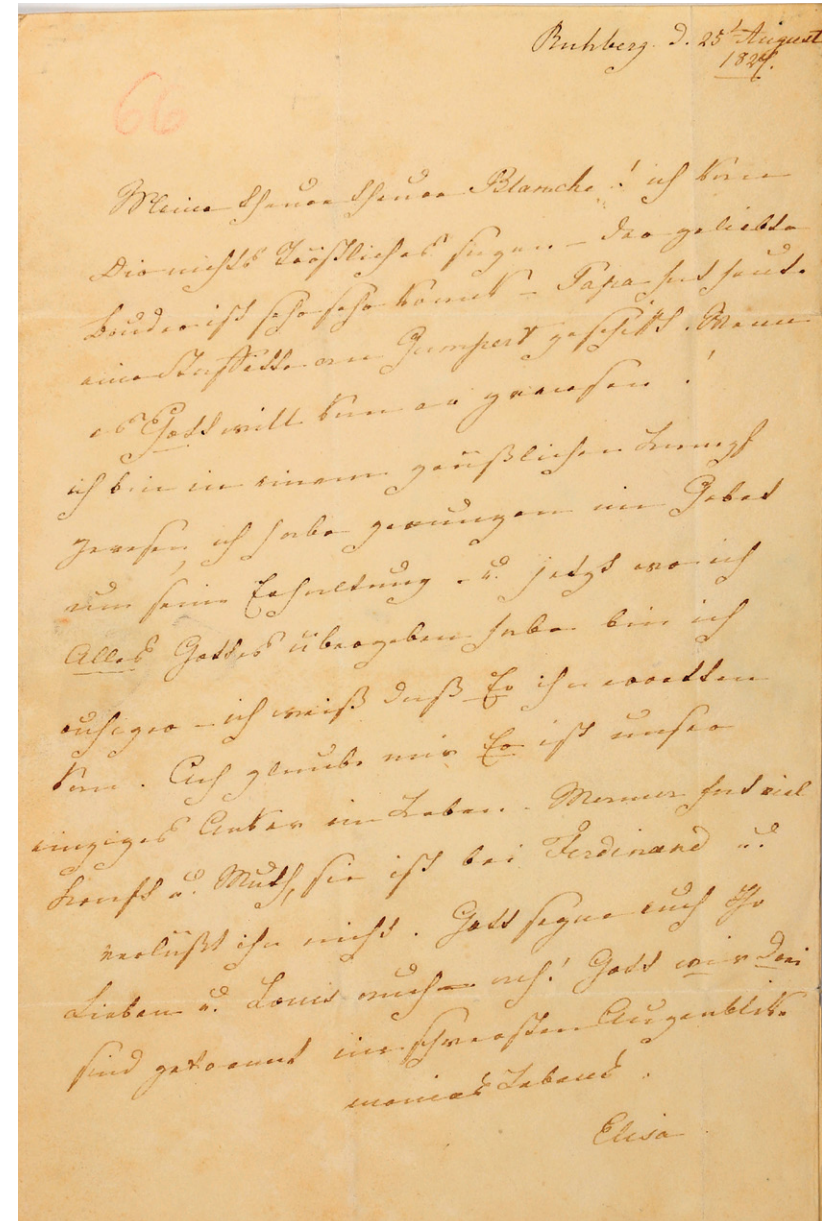 Ruhberg. d. 25t August
1827.
66
Meine theure theure Blanche! ich kann
Dir nichts Tröstliches sagen – der geliebte
Bruder ist sehr sehr krank – Papa hat heute
eine Staffette an Gumpert geschickt. Wenn
es Gott will kann er genesen!
ich bin in einem gräßlichen Kampf
gewesen, ich habe gerungen im Gebet
um seine Erhaltung – u. jetzt wo ich
Alles Gottes übergeben habe bin ich
ruhiger – ich weiß daß Er ihn retten
kann. Ach glaube mir Er ist unser
einziger Anker im Leben. Mama hat viel
Kraft u. Muth, sie ist bei Ferdinand u.
verläßt ihn nicht. Gott segne euch Ihr
Lieben u. Louis auch – ach! Gott wir Drei
sind getrennt im schwersten Augenblick
meines Lebens.
Elisa.